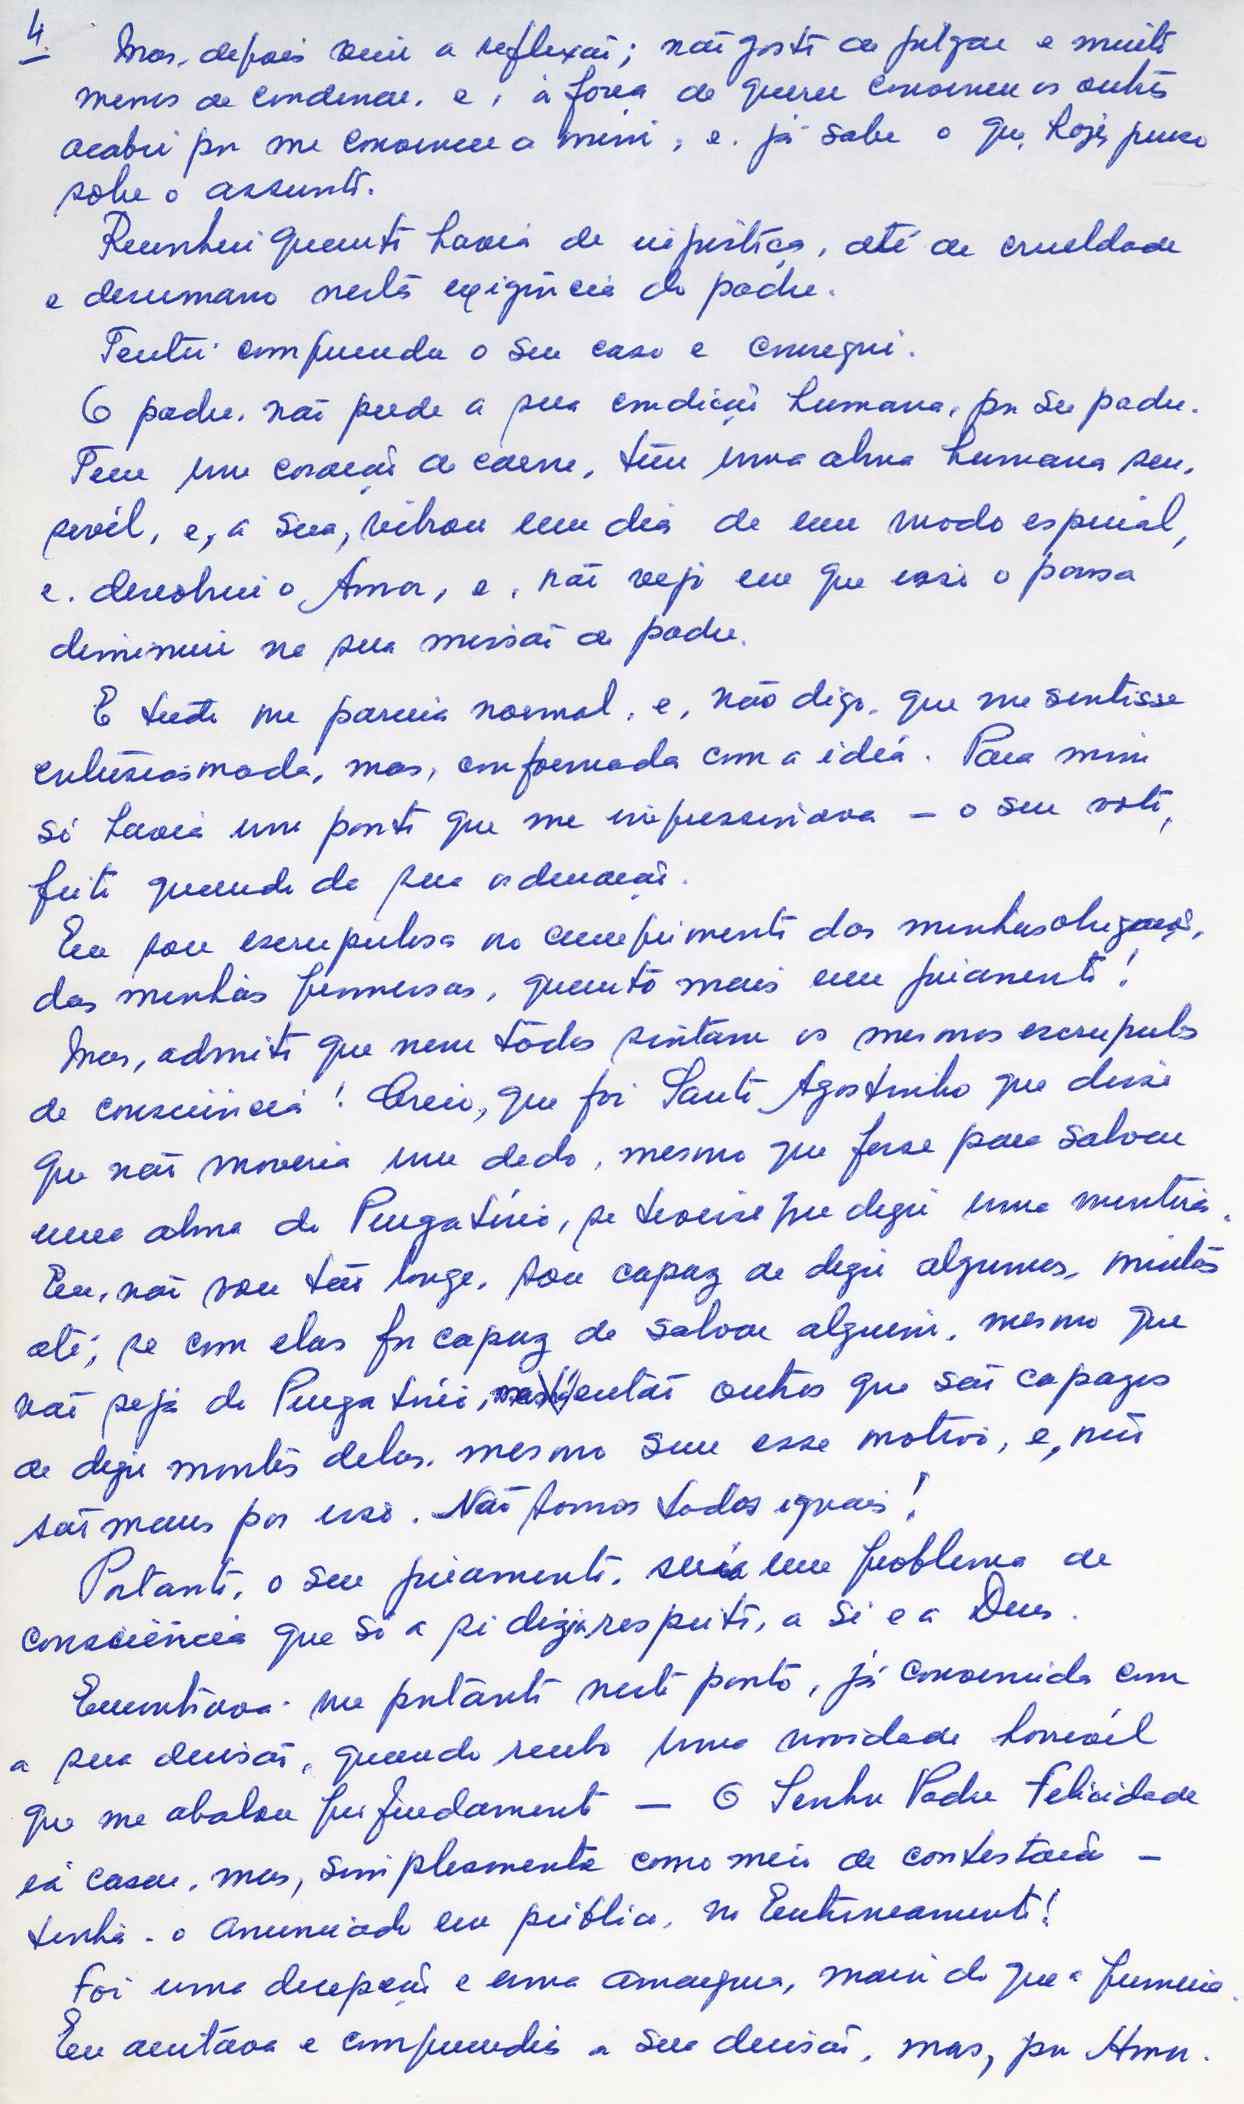 4.
Mas, depois veio a reflexão; não gosto de julgar e muito
menos de condenar, e, à força de querer convencer os outros
acabei por me convencer a mim, e, já sabe o que, hoje, penso
sobre o assunto.
Reconheci quanto havia de injustiça, até de crueldade
e desumano nesta exigência do padre.
Tentei compreender o seu caso e consegui.
O padre, não perde a sua condição humana, por ser padre.
Tem um coração de carne, tem uma alma humana sen,
sivél, e, a sua, vibrou um dia de um modo especial,
e, descobriu o Amor, e, não vejo em que isso o possa
diminuir na sua missão de padre.
E tudo me parecia normal, e, não digo, que me sentisse
entusiasmada, mas, conformada com a idéa. Para mim
só havia um ponto que me impressionava – o seu voto,
feito quando da sua ordenação.
Eu sou escrupulosa no cumprimento das minhas obrigações,
das minhas promessas, quanto mais um juramento!
Mas, admito que nem todos sintam os mesmos escrupulos
de consciência! Creio, que foi Santo Agostinho que disse
que não moveria um dedo, mesmo que fosse para salvar
uma alma do Purgatório, se tivesse que dizer uma mentira.
Eu, não vou tão longe, sou capaz de dizer algumas, muitas
até, se com elas for capaz de salvar alguem, mesmo que
não seja do Purgatório, então outros que são capazes
de dizer montes delas, mesmo sem esse motivo, e, não
são maus por isso. Não somos todos iguais!
Portanto, o seu juramento, seria um problema de
consciência que só a si dizia respeito, a si e a Deus.
Encontrava-me portanto neste ponto, já convencida com
a sua decisão, quando recebo uma novidade horrivél
que me abalou profundamente — O Senhor Padre Felicidade
ia casar, mas, simplesmente como meio de contestação –
tinha-o anunciado em público, no Entroncamento!
Foi uma decepção e uma amargura, maior do que a primeira.
Eu aceitava e compreendia a sua decisão, mas, por Amor.